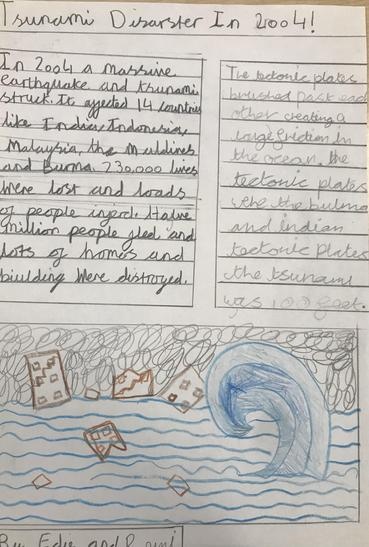 Tsunami Disarster In 2004!
In 2004 a massive
earthquake and tsunami
struck. It affected 14 countries
like India, Indonesia,
Malaysia, the Muldives
and Burma. 230,000 lives
were lost and loads
of people injerd.
million people fled and
lots of homes and
biulding were distroyed.
The tectonic plates
brushed past each
other creating a
large friction in
the ocean. the
tectonic plates
were the burma
and indian
tectonic plates
the tsunami
was 100 feet.
By Edie and